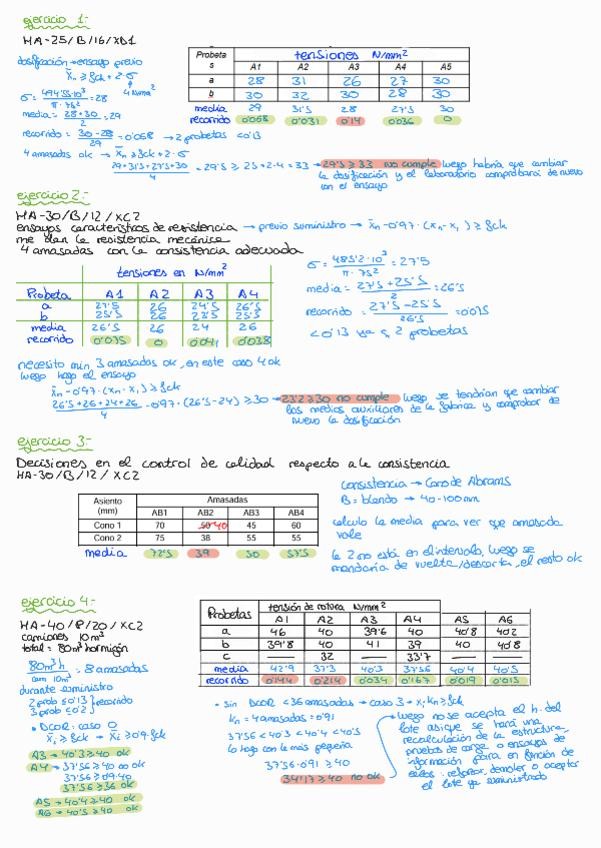 ejercicio 1:-
HA-25/B/16/XD1
dosificación → ensayo previo
x̄n ≥ fck + 2·σ
4 N/mm²
σ = 494'55·10³ / π·75² = 28
media = 28+30 / 2 = 29
recorrido = 30-28 / 29 = 0'068 → 2 probetas < 0'13
Probetas tensiones N/mm²
A1 A2 A3 A4 A5
a 28 31 26 27 30
b 30 32 30 28 30
media 29 31'5 28 27'5 30
recorrido 0'068 0'031 0'14 0'036 0
4 amasadas ok → x̄n ≥ fck + 2·σ
29+31'5+27'5+30 / 4 = 29'5 ≥ 25+2·4 = 33 → 29'5 ≥ 33 no cumple luego habría que cambiar
la dosificación y el laboratorio comprobará de nuevo
con el ensayo
ejercicio 2:-
HA-30/B/12/XC2
ensayos característicos de resistencia → previo suministro → x̄n - 0'97·(xn - x1) ≥ fck
me dan la resistencia mecánica
4 amasadas con la consistencia adecuada
tensiones en N/mm²
Probeta A1 A2 A3 A4
a 27'5 26 24'5 26'5
b 25'5 26 23'5 25'5
media 26'5 26 24 26
recorrido 0'075 0 0'041 0'038
σ = 485'2·10³ / π·75² = 27'5
media = 27'5+25'5 / 2 = 26'5
recorrido = 27'5-25'5 / 26'5 = 0'075
< 0'13 ya q 2 probetas
necesito min 3 amasadas ok, en este caso 4 ok
luego hago el ensayo
x̄n - 0'97·(xn - x1) ≥ fck
26'5+26+24+26 / 4 - 0'97·(26'5-24) ≥ 30 → 23'2 ≥ 30 no cumple luego se tendrían que cambiar
los medios auxiliares de la fábrica y comprobar de
nuevo la dosificación
ejercicio 3:-
Decisiones en el control de calidad respecto a la consistencia
HA-30/B/12/XC2
Asiento (mm) Amasadas
AB1 AB2 AB3 AB4
Cono 1 70 50 40 45 60
Cono 2 75 38 55 55
media 72'5 39 50 57'5
consistencia → Cono de Abrams
B = blando → 40-100mm
calculo la media para ver que amasada
vale
la 2 no está en el intervalo, luego se
mandaría de vuelta/descarta, el resto ok
ejercicio 4:-
HA-40/P/20/XC2
camiones 10m³
total = 80m³ hormigón
80m³h / cam 10m³ = 8 amasadas
durante suministro
2 prob ≤ 0'13 recorrido
3 prob ≤ 0'2
· DCOR: caso 0
x̄i ≥ fck → x̄i ≥ 0'9·fck
A3 → 40'3 ≥ 40 ok
A4 → 37'56 ≥ 40 no ok
37'56 ≥ 0'9·40
37'56 ≥ 36 ok
A5 → 40'4 ≥ 40 ok
A6 → 40'5 ≥ 40 ok
Probetas tensión de rotura N/mm²
A1 A2 A3 A4 A5 A6
a 46 40 39'6 40 40'8 40'2
b 39'8 40 41 39 40 40'8
c — 32 — 33'7 — —
media 42'9 37'3 40'3 37'56 40'4 40'5
recorrido 0'144 0'214 0'034 0'167 0'019 0'015
· Sin DCOR < 36 amasadas → caso 3 → x1·kn ≥ fck
kn = 4 amasadas = 0'91
37'56 < 40'3 < 40'4 < 40'5
lo hago con la más pequeña
37'56·0'91 ≥ 40
34'17 ≥ 40 no ok
→ luego no se acepta el h. del
lote así que se hará una
recalculación de la estructura,
pruebas de carga o ensayos de
información para en función de
ellos: reforzar, demoler o aceptar
el lote ya suministrado